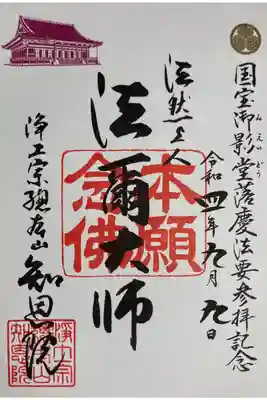 国宝御影堂落慶法要参拝記念
みえいどう
令和四年九月九日
法然上人
法爾大師
本願
念佛
浄土宗總本山
知恩院